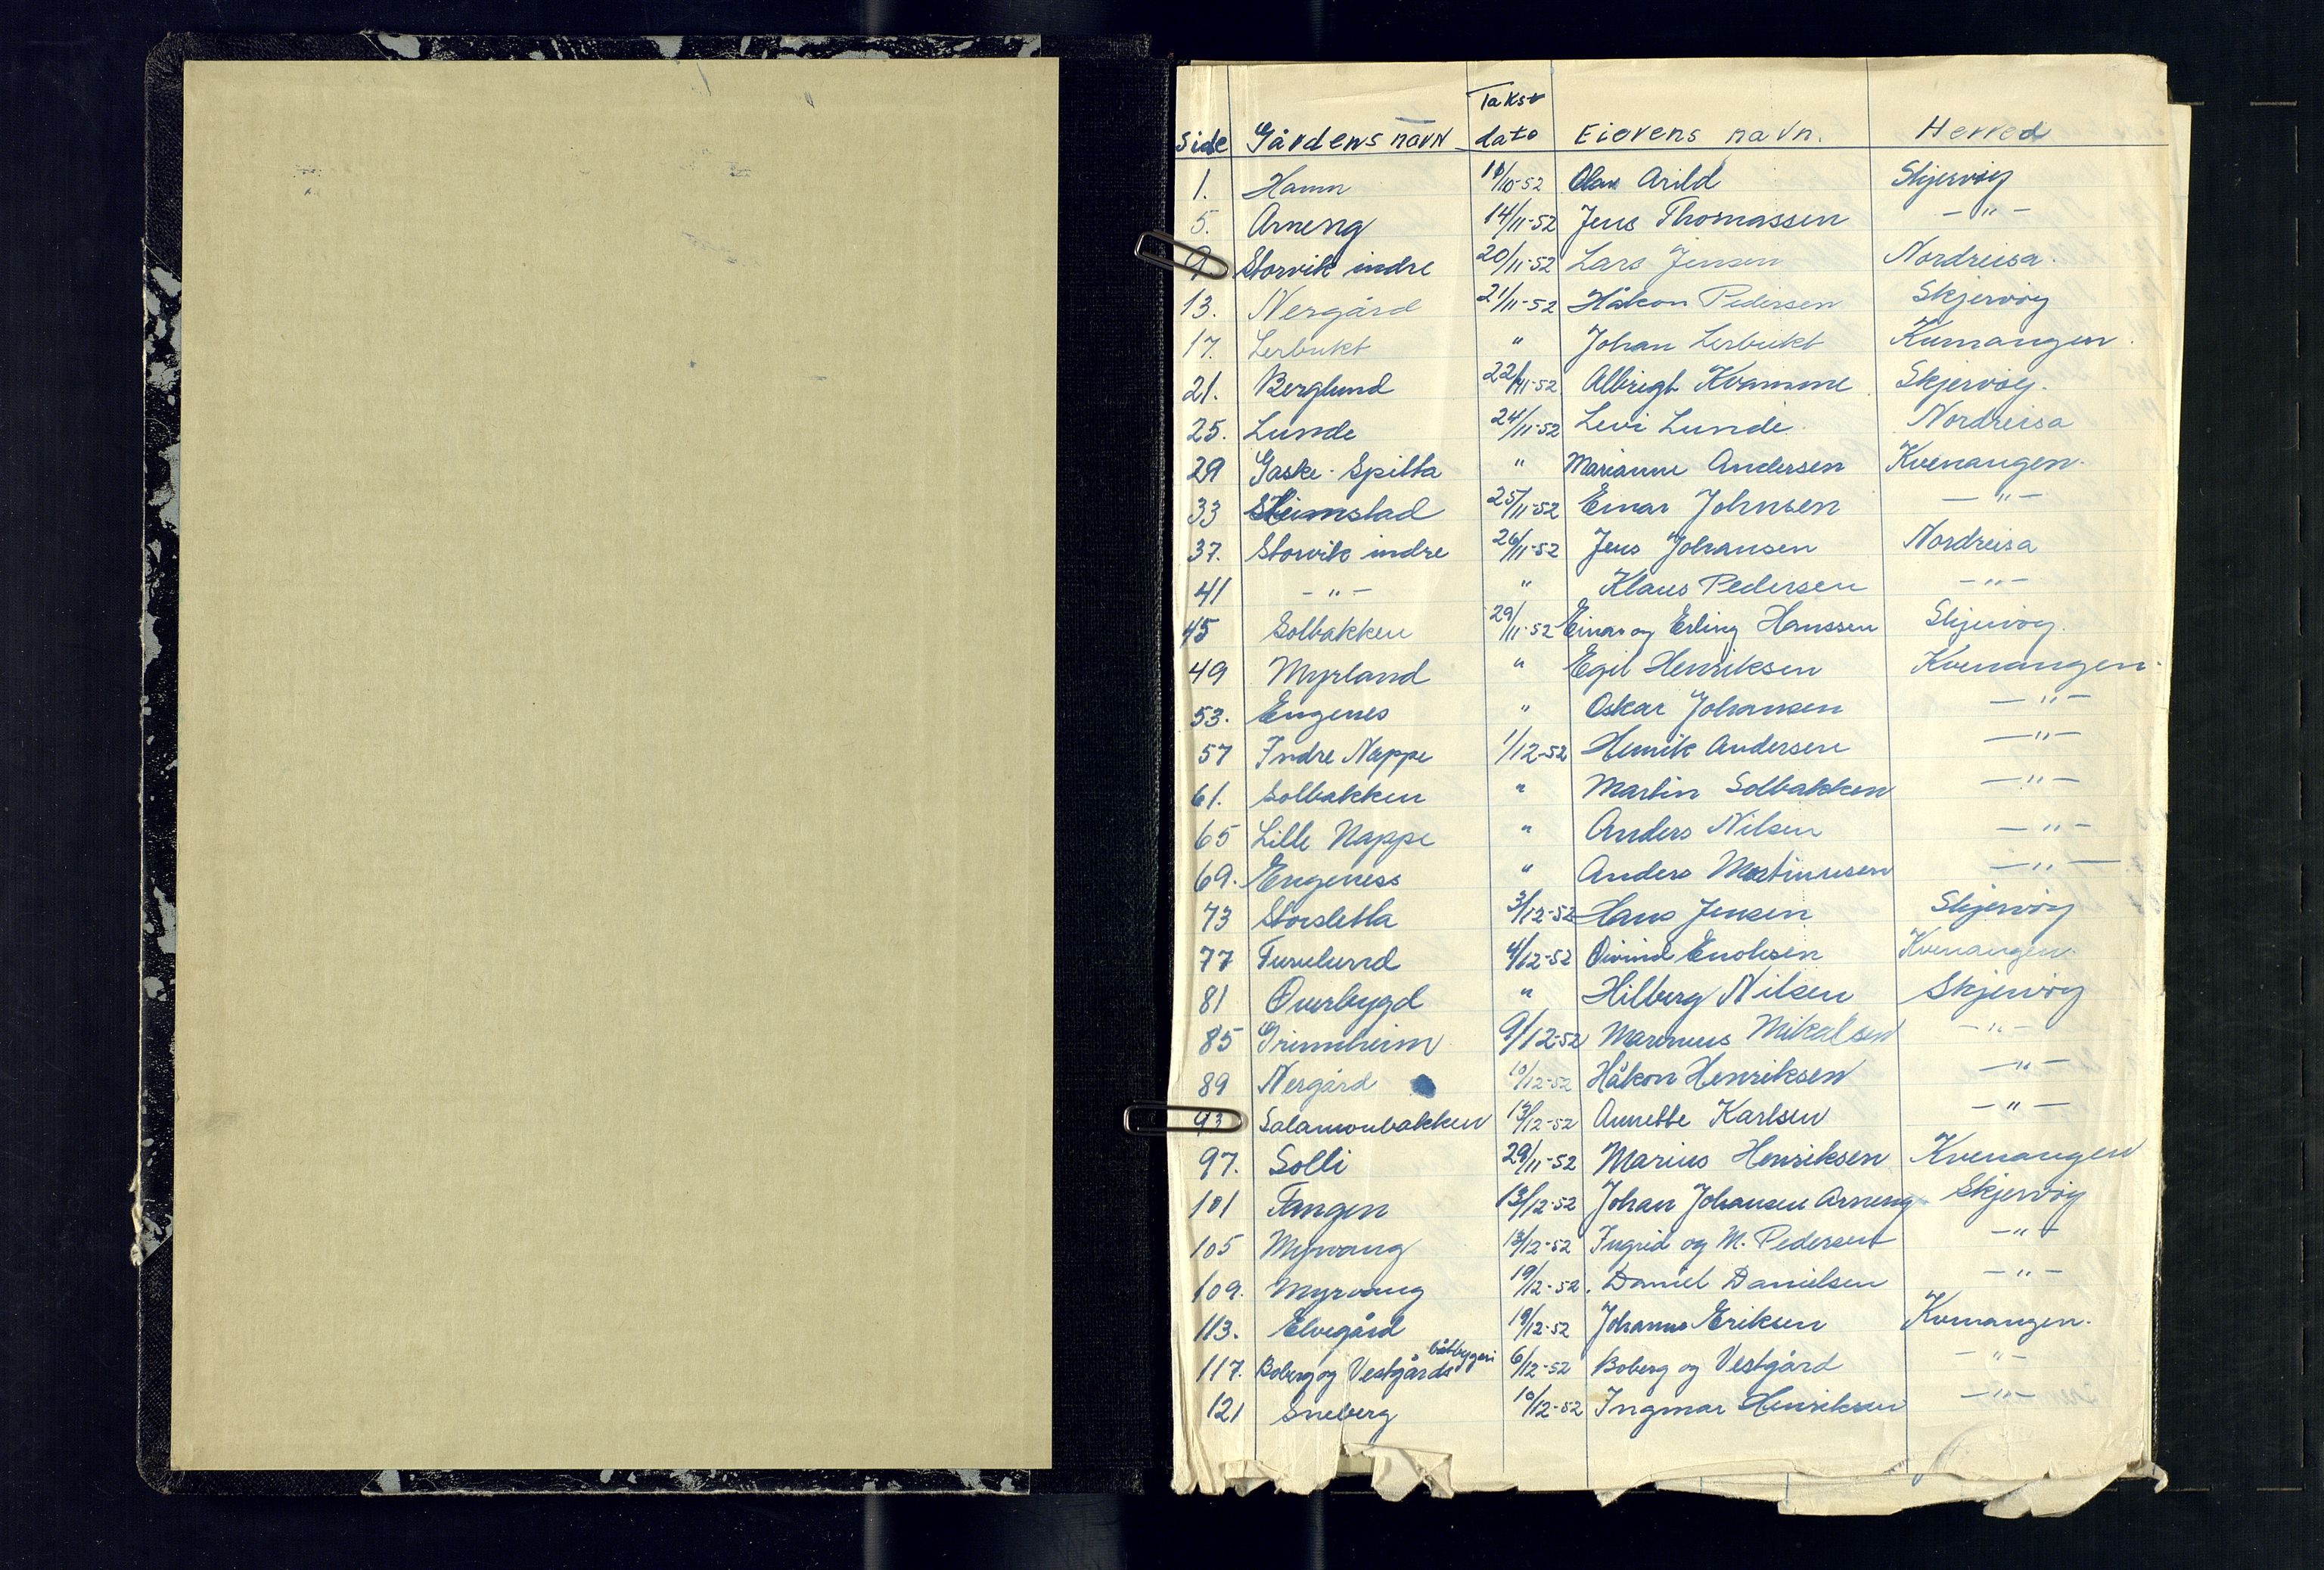 Takst
Side Gårdens navn dato Eierens navn. Herred
1. Hamn 11/10-52 Olav Arild Skjervøy
5. Arneng 14/11-52 Jens Thomassen - " -
9 Storvik indre 20/11-52 Lars Jensen Nordreisa.
13. Nergård 21/11-52 Håkon Pedersen Skjervøy
17. Lerbukt " Johan Lerbukt Kvenangen.
21. Berglund 22/11-52 Albrigt Kvamme Skjervøy.
25. Lunde 24/11-52 Levi Lunde. Nordreisa
29 Gaske-Spilta " Marianne Andersen Kvenangen.
33 Heimstad 25/11-52 Einar Johnsen - " -
37. Storvik indre 26/11-52 Jens Johansen Nordreisa
41 - " - " Klaus Pedersen - " -
45 Solbakken 29/11-52 Einar og Erling Hanssen Skjervøy.
49 Myrland " Egil Henriksen Kvenangen.
53. Engenes " Oskar Johansen - " -
57 Indre Nappe 1/12-52 Henrik Andersen - " -
61. Solbakken " Martin Solbakken - " -
65 Lille Nappe " Anders Nilsen - " -
69. Engeness " Anders Martinusen - " -
73 Storsletta 3/12-52 Hans Jensen Skjervøy
77 Furulund 4/12-52 Øivind Enoksen Kvenangen.
81 Overbygd " Hilberg Nilsen Skjervøy
85 Grinnheim 9/12-52 Marenius Mikalsen - " -
89 Nergård 10/12-52 Håkon Henriksen - " -
93 Salamonbakken 13/12-52 Annette Karlsen - " -
97. Solli 29/11-52 Marius Henriksen Kvenangen
101 Tangen 13/12-52 Johan Johansen Arneng Skjervøy
105 Myrvang 13/12-52 Ingrid og M. Pedersen - " -
109. Myrvang 19/12-52. Daniel Danielsen - " -
113. Elvegård 19/12-52 Johannes Eriksen Kvenangen.
117. Boberg og Vestgårds båtbyggeri 6/12-52 Boberg og Vestgård - " -
121 Sneberg 10/12-52 Ingmar Henriksen - " -